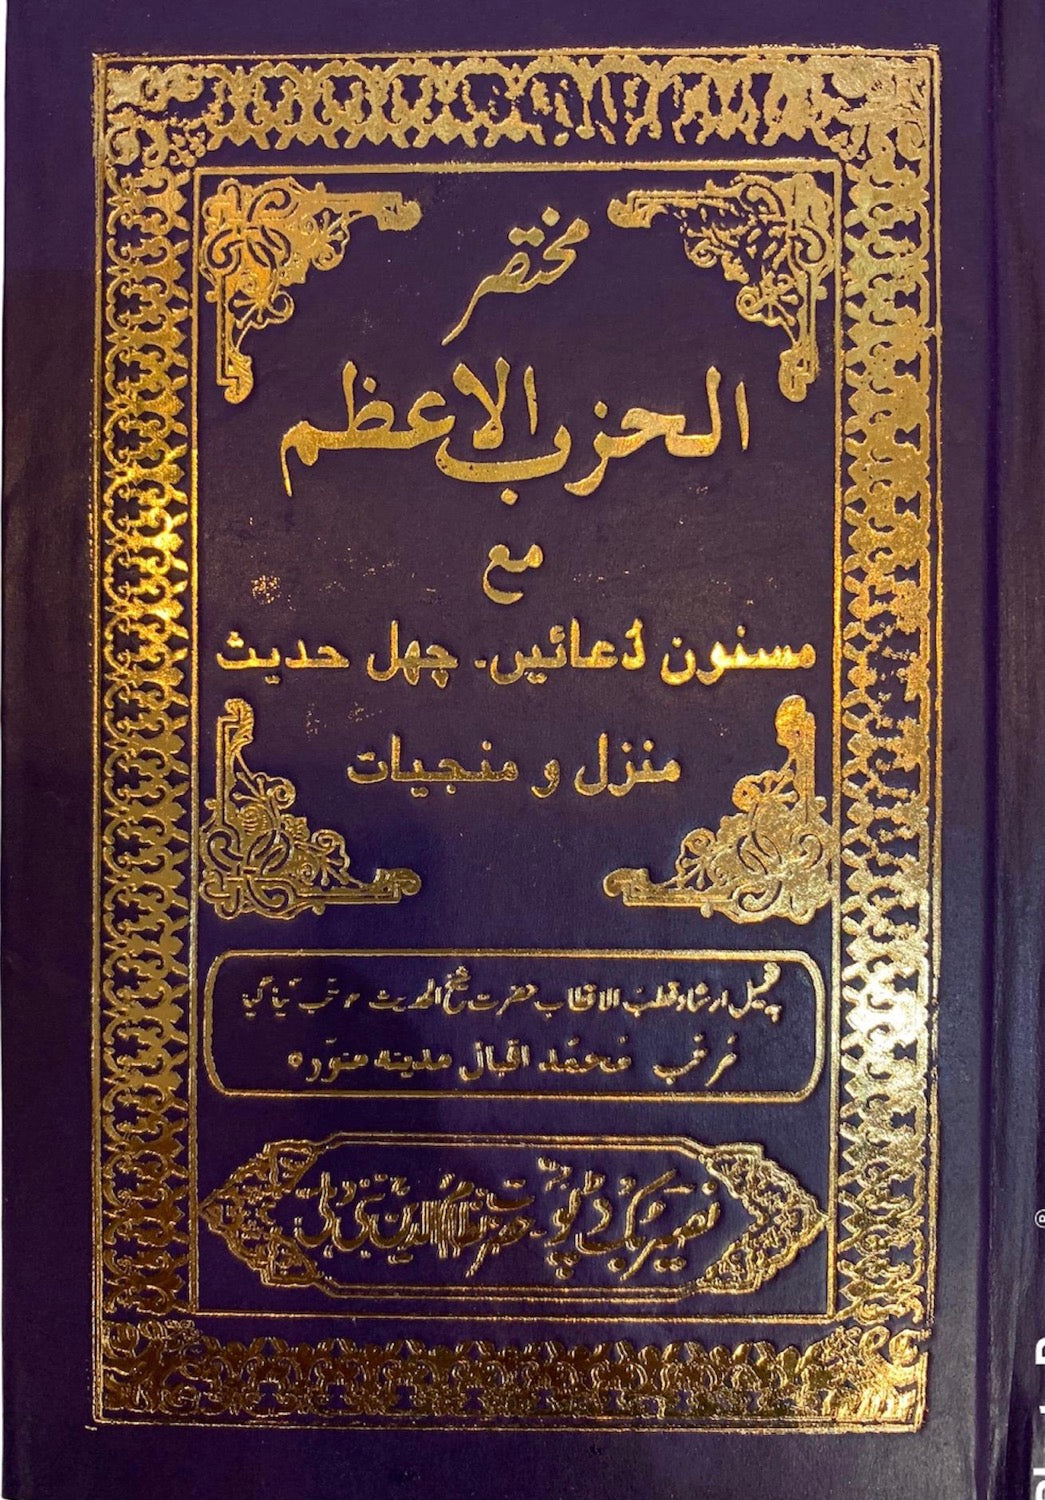 مختصر
الحزب الاعظم
مع
مسنون دُعائیں۔ چهل حدیث
منزل و منجیات
بہ تعمیل ارشاد قطب الاقطاب حضرت شیخ الحدیث مرتب کیا گیا
مرتب محمد اقبال مدینہ منورہ
نصیر بک ڈپو۔ حضرت نظام الدین نئی دہلی